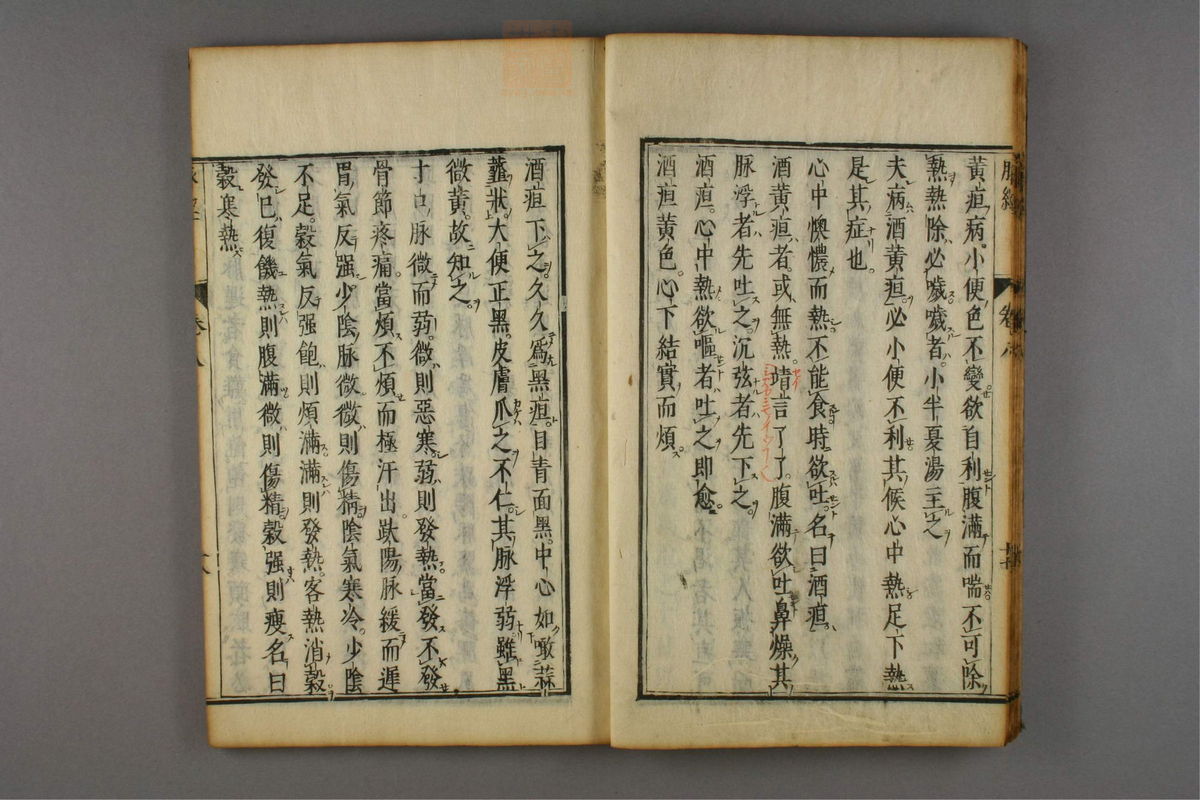 脉經
卷八
黃疸病。小便色不變。欲自利腹滿而喘。不可除
熱熱除必噦噦者。小半夏湯主之
夫病酒黃疸。必小便不利其候心中熱足下熱
是其症也。
心中懊憹而熱不能食時欲吐。名曰酒疸
酒黃疸者。或無熱。靖言了了。腹滿欲吐鼻燥其
脉浮者先吐之。沉弦者先下之。
酒疸。心中熱欲嘔者吐之即愈。
酒疸黃色。心下結實而煩。
酒疸下之。久久爲黑疸。目青面黑。中心如噉蒜
虀狀。大便正黑。皮膚爪之不仁。其脉浮弱雖黑
微黃。故知之。
寸口脉微而弱。微則惡寒。弱則發熱當發不發
骨節疼痛。當煩不煩而極汗出趺陽脉緩而遲
胃氣反强。少陰脉微。微則傷精陰氣寒冷。少陰
不足。穀氣反强飽則煩滿滿則發熱。客熱消穀
發已復饑熱則腹滿微則傷精穀强則瘦名曰
穀寒熱
卷八